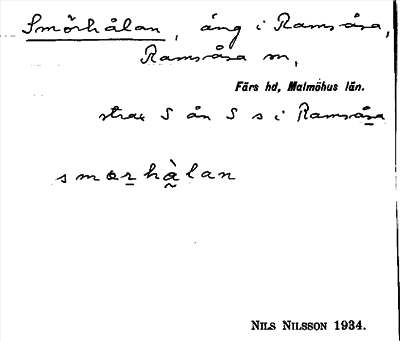 Smörhålan, äng i Ramsåsa,
Ramsåsa sn,
Färs hd, Malmöhus län.
strax S ån S s i Ramsåsa
smörhàlan
NILS NILSSON 1934.